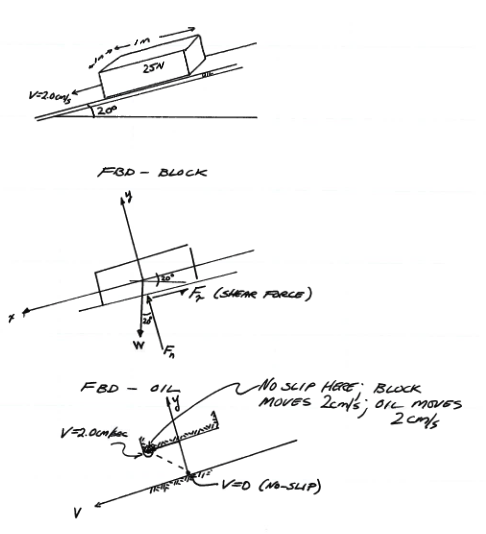 1m
1m
25N
OIL
V=2.0cm/s
20°
FBD - BLOCK
y
20°
Fτ (SHEAR FORCE)
x
20°
W
Fn
FBD - OIL
NO SLIP HERE; BLOCK
MOVES 2cm/s; OIL MOVES
2cm/s
y
V=2.0cm/sec
V=0 (NO-SLIP)
V